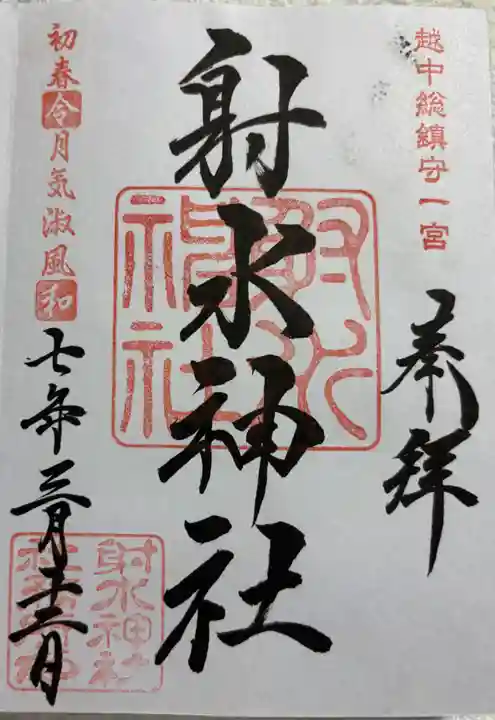 越中総鎮守一宮
奉拝
射水神社
射水
神社
初春令月気淑風和
七年三月
射水神社
社務所印